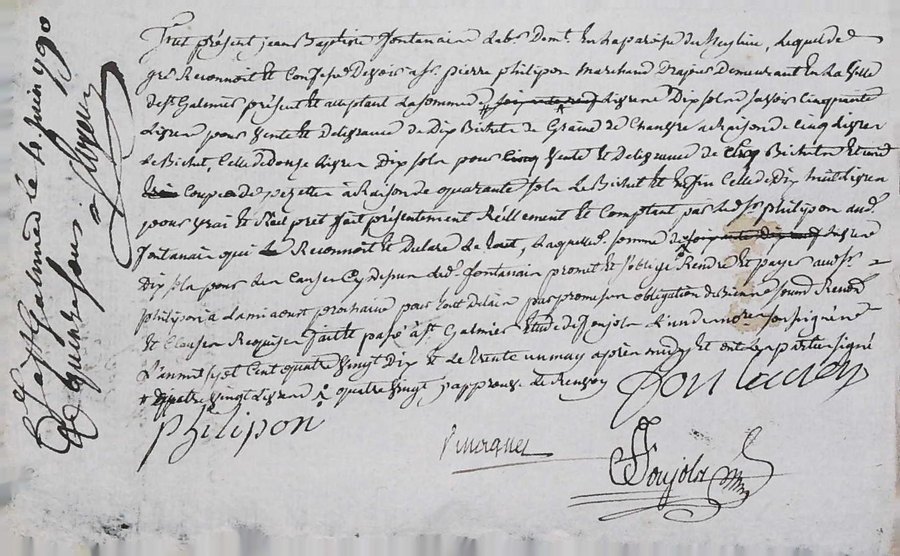 Fut présent jean Baptiste fontanaire Labr. Demt. En La parroisse de, Lequel de
gré Reconnoit Et Confesse devoir a sr. pierre philipon marchand Drapier Demeurant En La Ville
de st Galmier présent Et acceptant La somme de Livres Dix sols a savoir Cinquante
Livres pour Vente Et delivrance de Dix Bichets de Graine de Chanvre a Raison de Cinq Livres
Le Bichet, Celle de Douze Livres Dix sols pour Vente Et delivrance de Cinq Bichets Et une
Coupe de pezettes a Raison de quarante sols Le Bichet Et Enfin Celle de Dix huit Livres
pour Vrai Et Réel pret fait présentement Réellement Et Comptant par Led. sr philipon aud.
fontanair qui Le Reconnoit Et Declare Le tout, Laquelle d. somme de Livres
dix sols pour Les Causes Cy dessus Led. fontanair promet Et s'oblige Rendre Et payer aud sr.
philipon a La mi aoust prochaine pour tout Delai par promesse obligation de Biens Renonc.
Et Clauses Requises fait Et passé a st. Galmier Etude de Ponjolx L'un des nores. soussignés
L'an mil sept Cent quatre Vingt Dix Et le trente un may après midy Et ont Les parties signé
+ quatre Vingt Livres + quatre Vingt japprouve Le Renvoy
fontanair
philipon
Ponjolx
a st Galmier le 4 juin 1790
Rt quinze sous